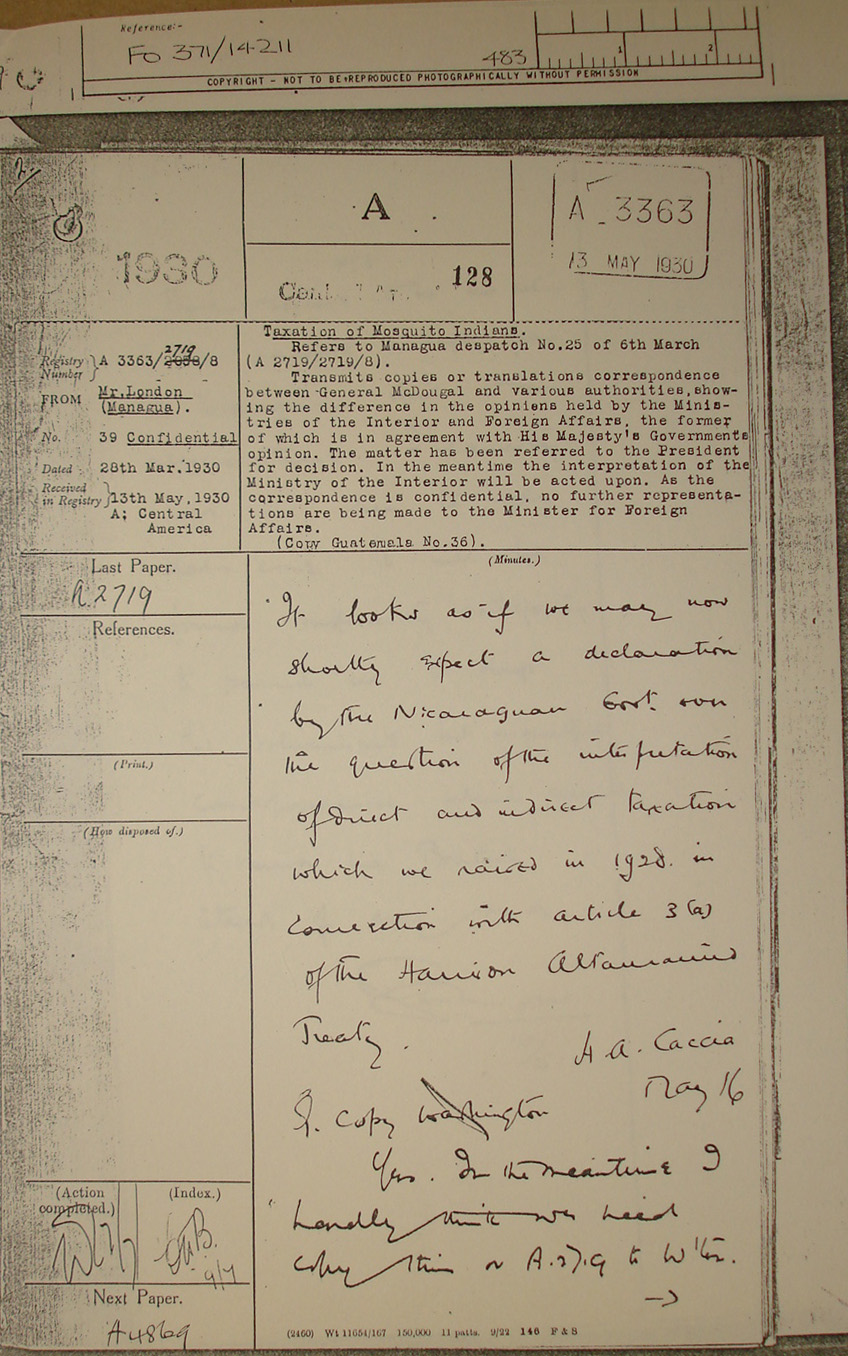 Reference:-
FO 371/14211
483
1
2
COPYRIGHT - NOT TO BE REPRODUCED PHOTOGRAPHICALLY WITHOUT PERMISSION
2/
1930
A
128
A 3363
13 MAY 1930
Registry Number } A 3363/2719/8
FROM Mr. London
(Managua).
No. 39 Confidential
Dated 28th Mar. 1930
Received in Registry } 13th May, 1930
A: Central
America
Taxation of Mosquito Indians.
Refers to Managua despatch No.25 of 6th March
(A 2719/2719/8).
Transmits copies or translations correspondence
between General McDougal and various authorities, show-
ing the difference in the opinions held by the Minis-
tries of the Interior and Foreign Affairs, the former
of which is in agreement with His Majesty's Governments
opinion. The matter has been referred to the President
for decision. In the meantime the interpretation of the
Ministry of the Interior will be acted upon. As the
correspondence is confidential, no further representa-
tions are being made to the Minister for Foreign
Affairs.
(Copy Guatemala No.36).
Last Paper.
A 2719
References.
(Print.)
(How disposed of.)
(Action completed.)
(Index.)
9/7
Next Paper.
A 4869
(Minutes.)
It looks as if we may now
shortly expect a declaration
by the Nicaraguan Govt. on
the question of the interpretation
of direct and indirect taxation
which we raised in 1928 in
connection with article 3(a)
of the Harrison Altamirano
Treaty.
H. A. Caccia
May 16
Copy Washington
Yes. In the meantime I
hardly think we need
copy this or A.2719 to W'ton.
→
(2460) Wt 11654/167 150,000 11 patts. 9/22 146 F & S